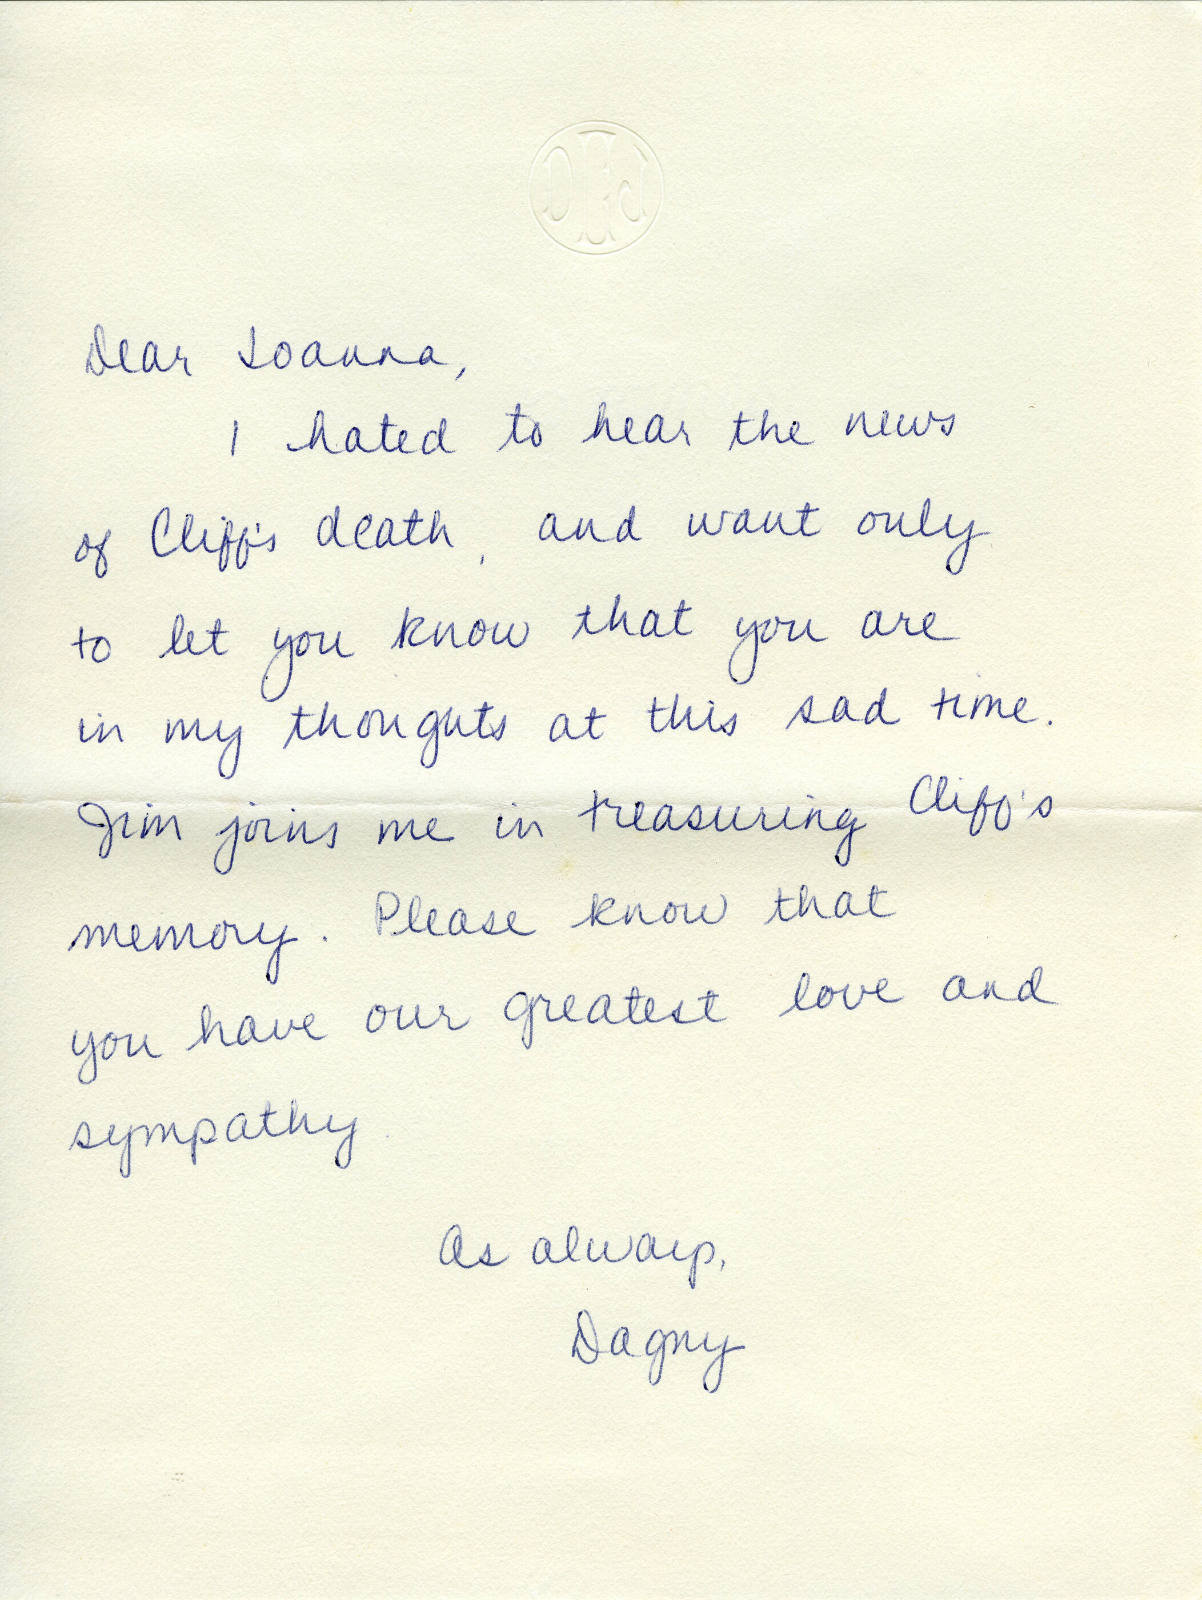 Dear Ioanna,
I hated to hear the news
of Cliff's death, and want only
to let you know that you are
in my thoughts at this sad time.
Jim joins me in treasuring Cliff's
memory. Please know that
you have our greatest love and
sympathy
As always,
Dagny